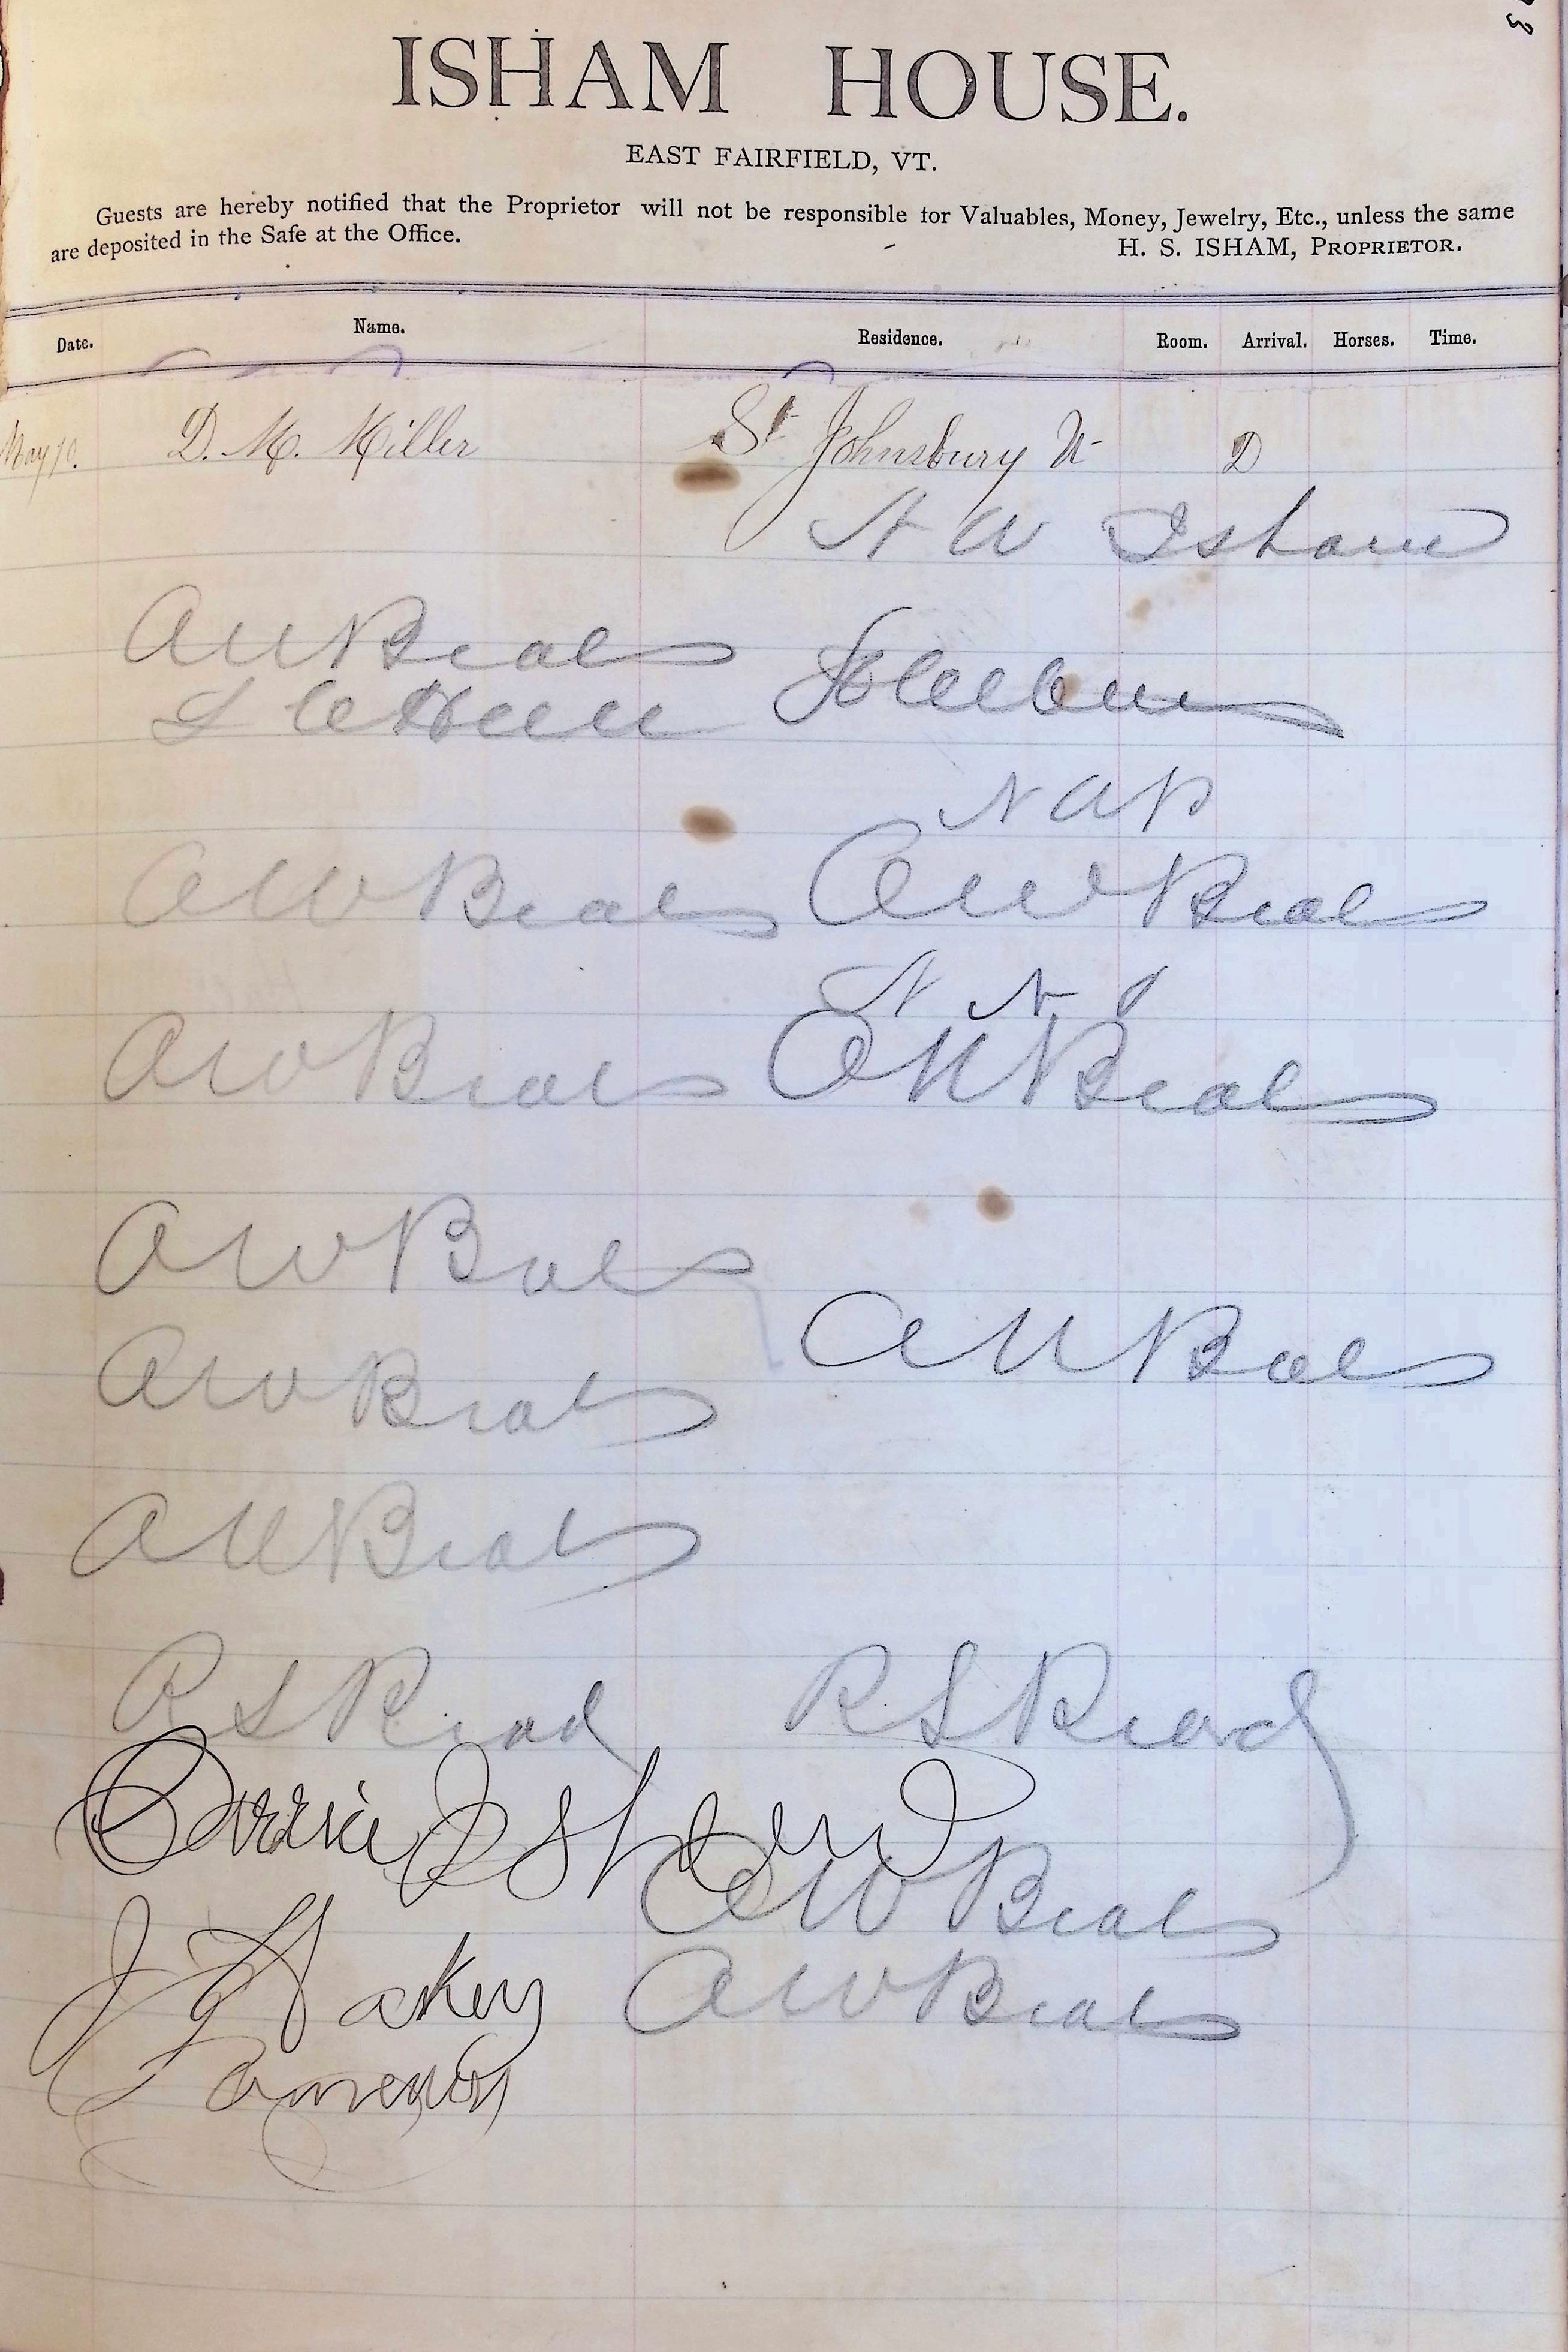 ISHAM HOUSE.
EAST FAIRFIELD, VT.
Guests are hereby notified that the Proprietor will not be responsible for Valuables, Money, Jewelry, Etc., unless the same
are deposited in the Safe at the Office. H. S. ISHAM, PROPRIETOR.
Date. Name. Residence. Room. Arrival. Horses. Time.
May 10. D. M. Miller St Johnsbury Vt D
H W Isham
A W Beals
A W Beals A W Beals
A W Beals A W Beals
A W Beals
A W Beals
A W Beals
A W Beals
R S Read R S Read
Carrie Isham
A W Beals
J
A W Beals